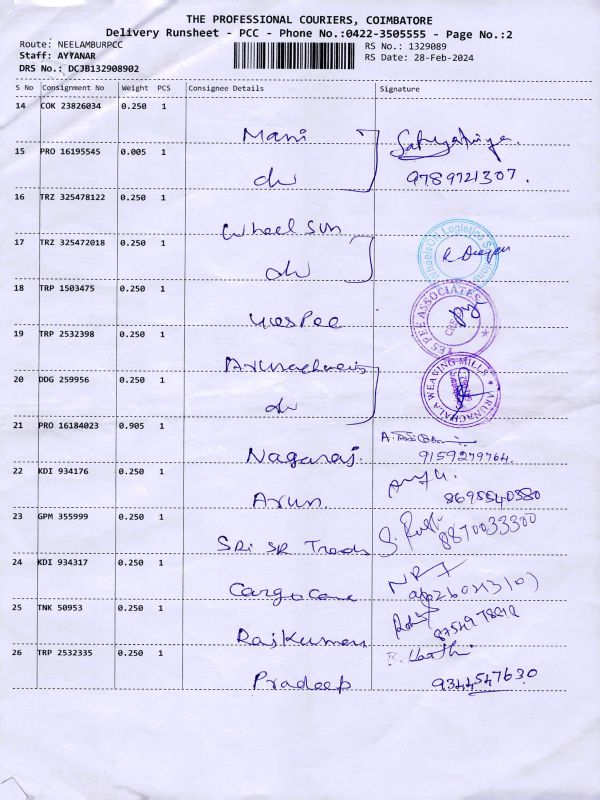 THE PROFESSIONAL COURIERS, COIMBATORE
Delivery Runsheet - PCC - Phone No.:0422-3505555 - Page No.:2
Route: NEELAMBURPCC
RS No.: 1329089
Staff: AYYANAR
RS Date: 28-Feb-2024
DRS No.: DCJB132908902
S No Consignment No Weight PCS Consignee Details Signature
14 COK 23826034 0.250 1
Mani Sathyapriya.
15 PRO 16195545 0.005 1
do 9789721307.
16 TRZ 325478122 0.250 1
Wheel Sun
17 TRZ 325472018 0.250 1
do
18 TRP 1503475 0.250 1
Yes Pee YES PEE ASSOCIATES
19 TRP 2532398 0.250 1
ARUNACHALA WEAVING MILLS
20 DDG 259956 0.250 1
do
21 PRO 16184023 0.905 1
Nagaraj. 9159279764.
22 KDI 934176 0.250 1
Arun. 8695540380
23 GPM 355999 0.250 1
SRi SR Trads 8870033300
24 KDI 934317 0.250 1
Cargo Care
25 TNK 50953 0.250 1
Rajkumar
26 TRP 2532335 0.250 1
Pradeep 9344547630